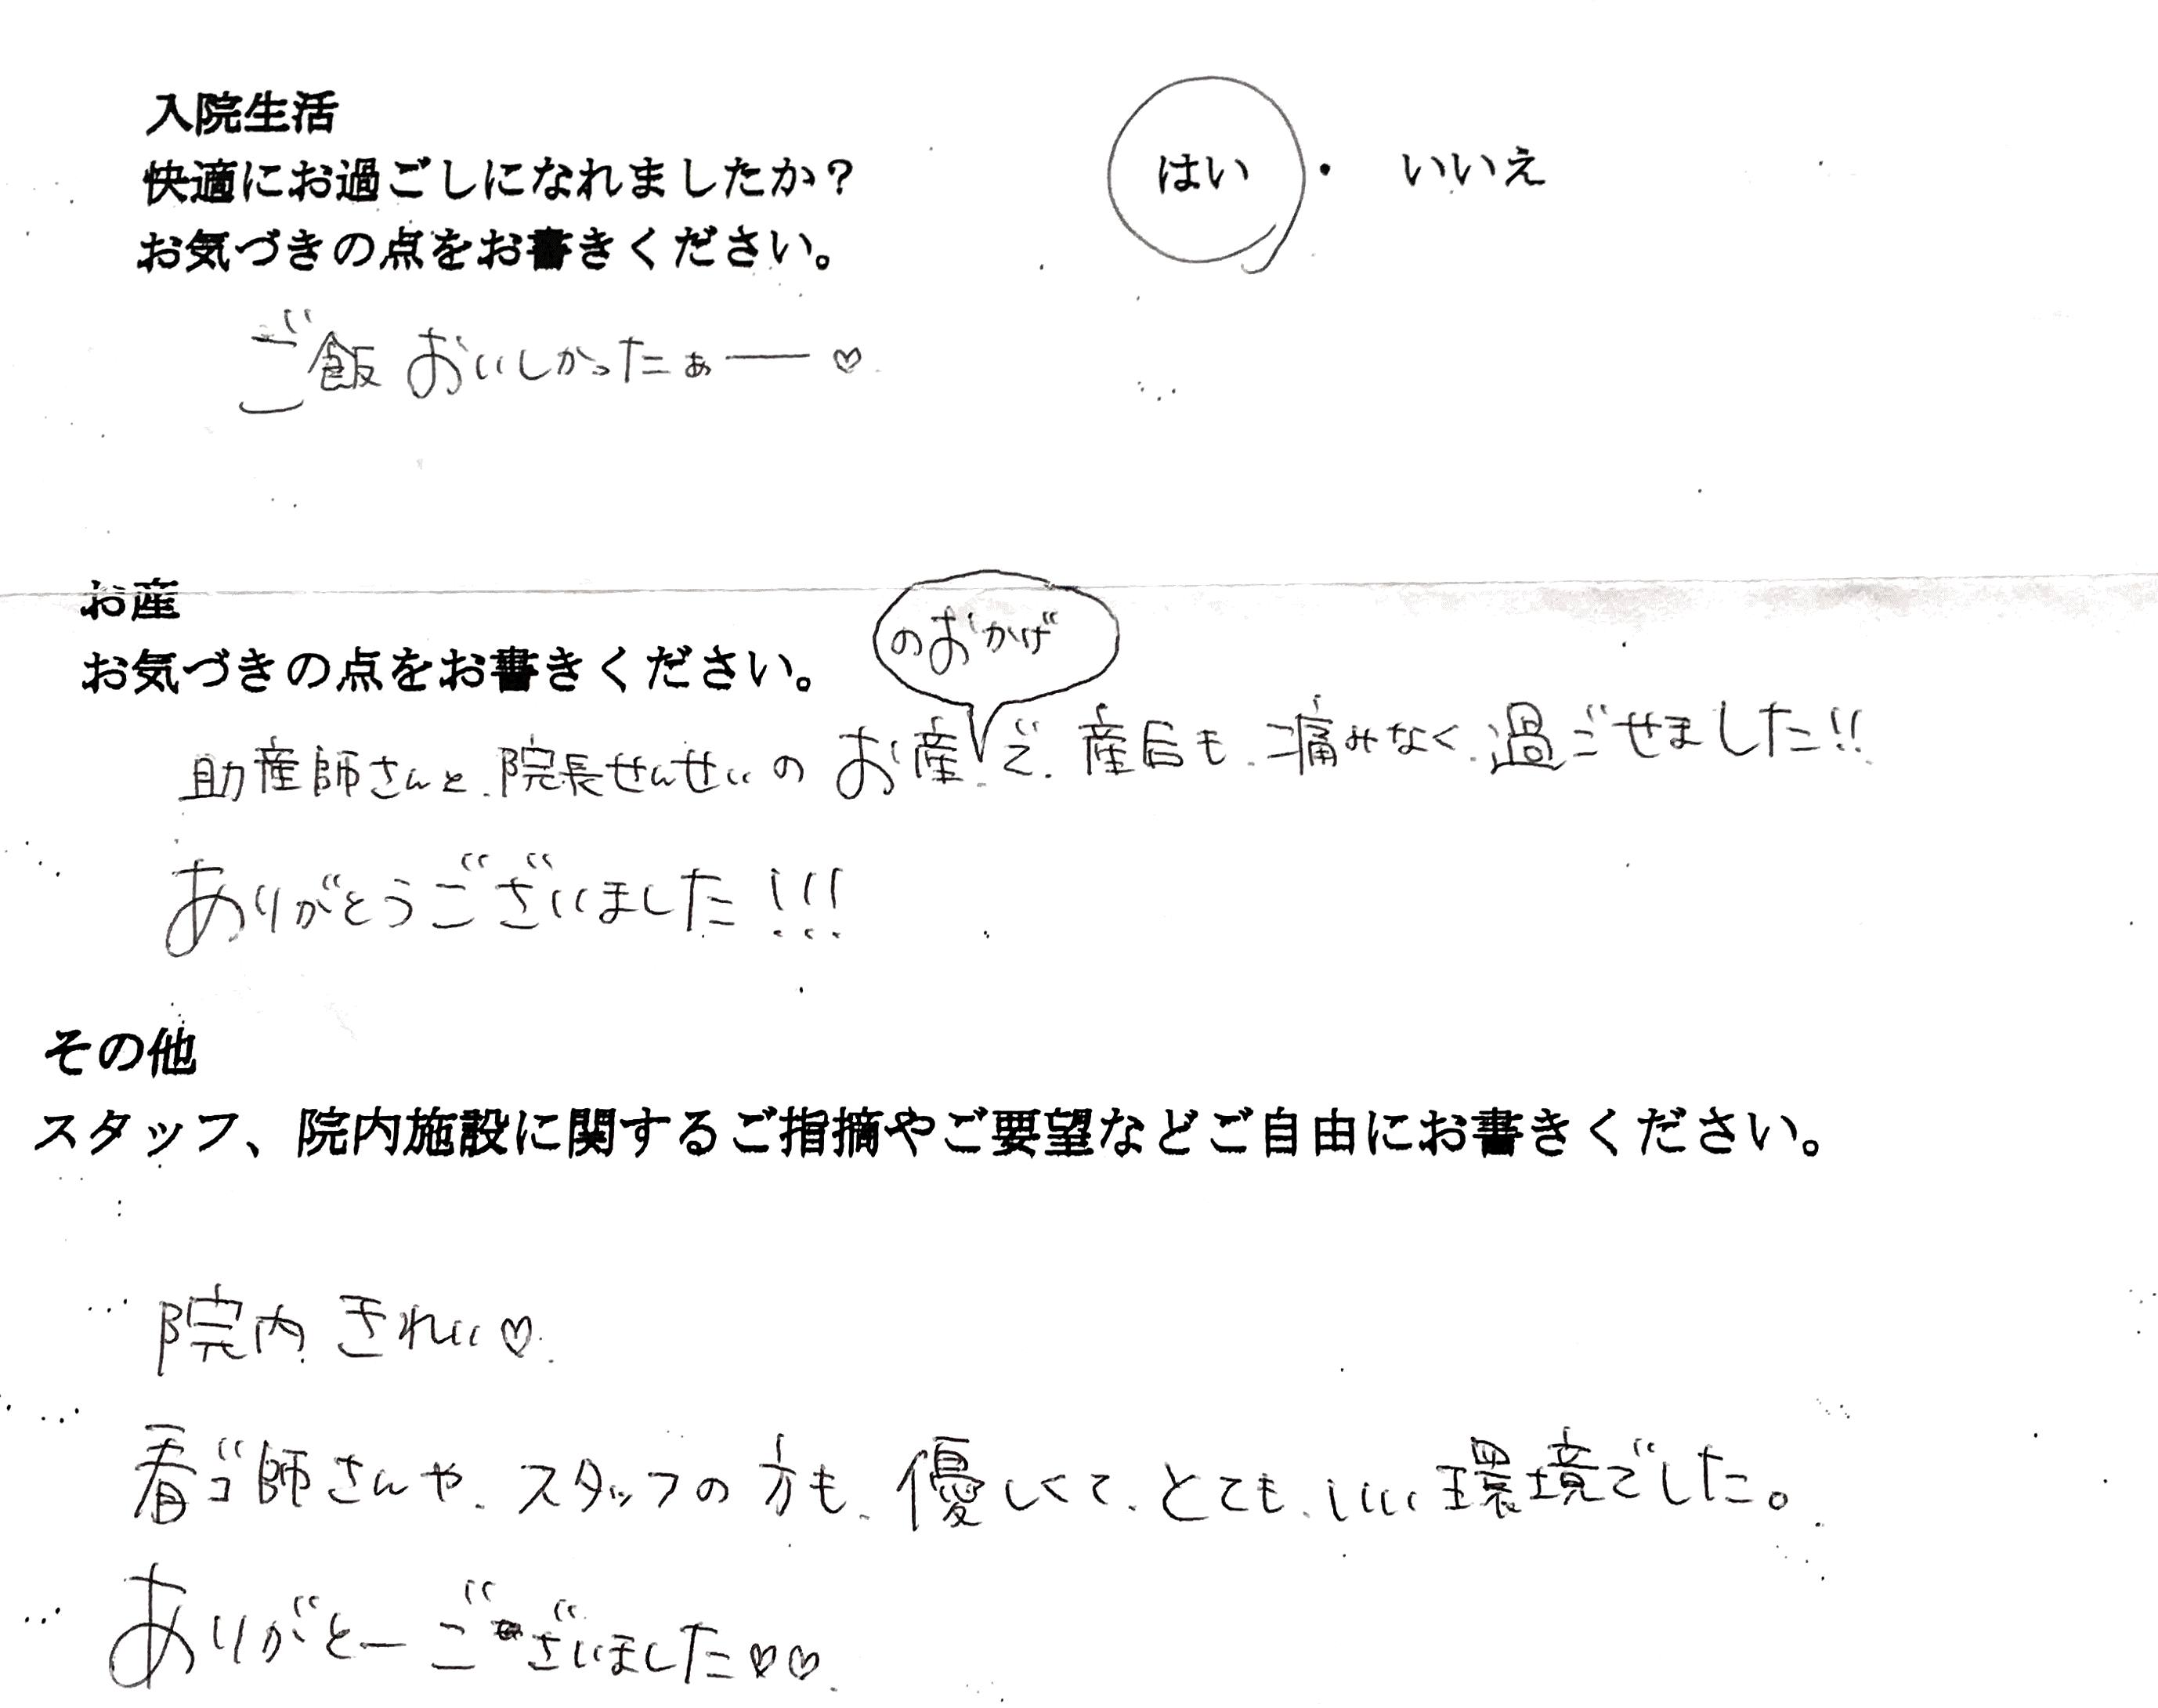 入院生活
快適にお過ごしになれましたか? はい ・ いいえ
お気づきの点をお書きください。
ご飯 おいしかったぁー♡
お産
お気づきの点をお書きください。
のおかげ
助産師さんと、院長せんせいの お産で、産后も、痛みなく、過ごせました!!
ありがとうございました!!!
その他
スタッフ、院内施設に関するご指摘やご要望などご自由にお書きください。
院内、きれい♡
看ゴ師さんや、スタッフの方も、優しくて、とても、いい環境でした。
ありがとーございました♡♡